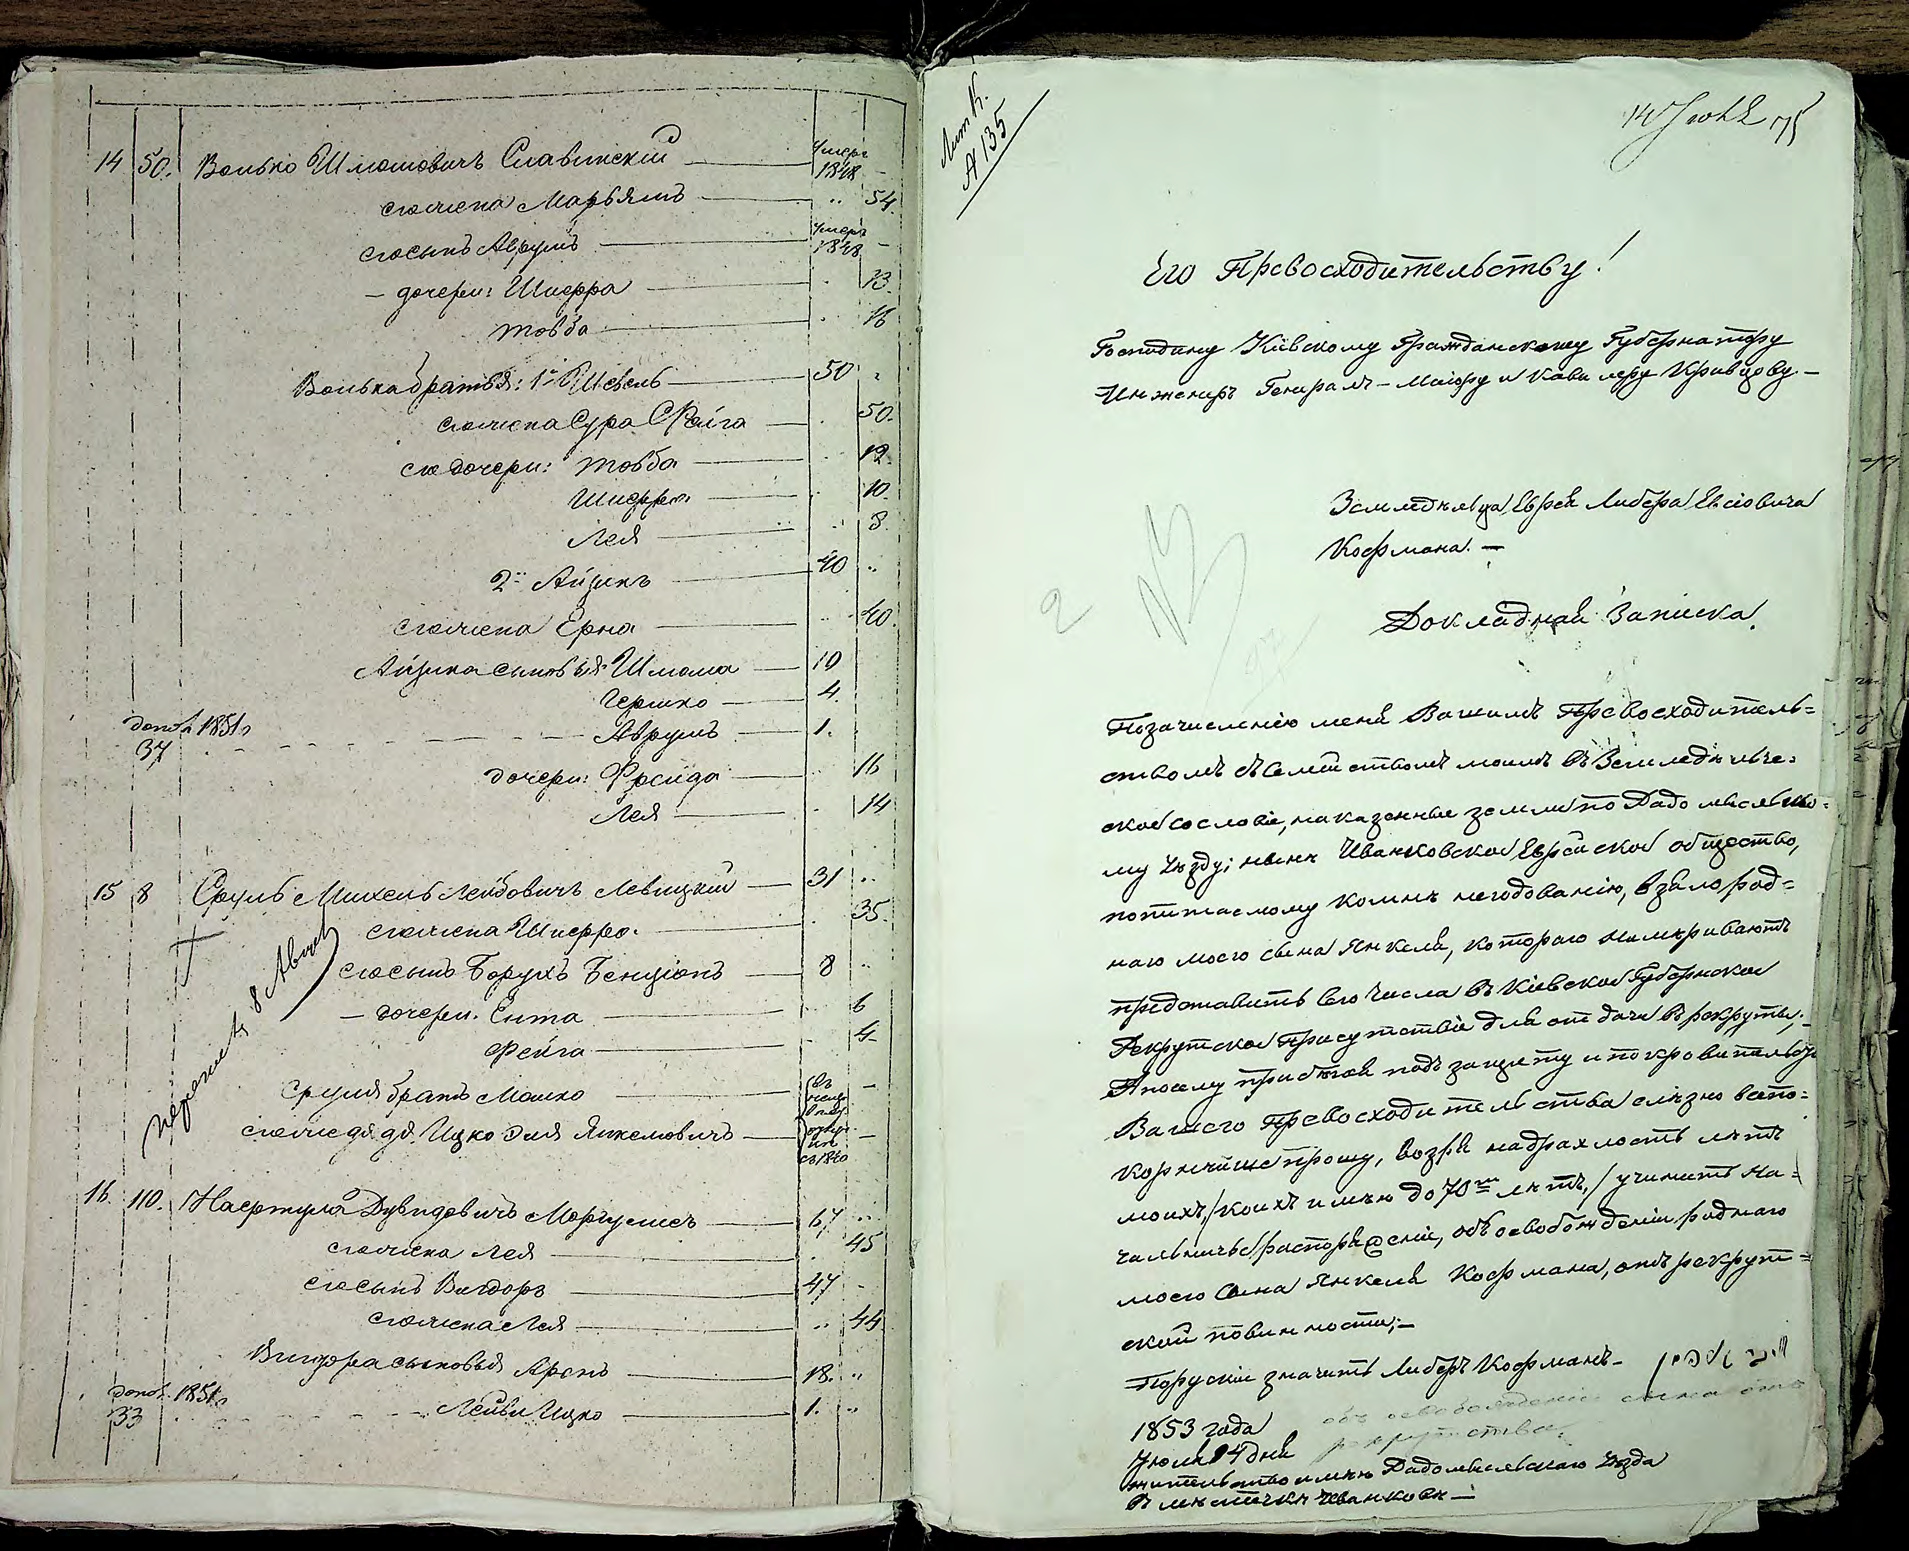 14 50. Волько Шлиомовичъ Славинскій умеръ 1848 -
его жена Марьямъ .. 54.
его сынъ Аврумъ умеръ 1848 -
- дочери: Шифра . 13.
Товба . 16
Волька братья: 1й Шевель 50 .
его жена Сура Фейга . 50.
его дочери: Товба 12.
Шифра 10.
Лея .. 8.
2й Айзикъ 40 ..
его жена Ерна .. 40.
Айзика сыновья: Шлома 10
Гершко 4.
допол. 1851 г. 37 Аврумъ 1.
дочери: Фрейда 16
Лея . 14
15 8 Сруль Михель Лейбовичъ Левицкій 31 ..
его жена Шифра . 35.
его сынъ Борухъ Бенціонъ 8 ..
- дочери: Ента .. 6
Фейга 4
Сруля братъ Мошко -
его же дядя Ицко Эля Янкелевичъ -
16. 110. Нафтула Дувидовичъ Моргулисъ 67 ..
его жена Лея . 45
его сынъ Вигдоръ 47 -
его жена Лея .. 44
Вигдора сыновья Аронъ 18. ..
допол. 1851 г. 33 Лейба Ицко 1. ..
Лит. К.
№ 135
14 Іюля 175
Его Превосходительству!
Господину Кіевскому Гражданскому Губернатору
Инженеръ Генералъ-Маіору и Кавалеру Кривцову.-
Земледѣльца Еврея Либера Евсіовича
Кофмана. -
2
Докладная Записка.
По зачисленію меня Вашимъ Превосходитель=
ствомъ съ семействомъ моимъ въ Земледѣльче=
ское сословіе, на казенные земли по Радомысльско=
му уѣзду; нынѣ Иванковское Еврейское общество,
по питаемому ко мнѣ негодованію, взяло род=
наго моего сына Янкеля, котораго намериваютъ
представить сего числа въ Кіевское Губернское
Рекрутское Присутствіе для отдачи въ рекруты;-
А посему прибѣгая подъ защиту и покровительство
Вашего Превосходительства слѣзно всепо=
корнѣйше прошу, возря на драхлость лѣтъ
моихъ,/коихъ имѣю до 70ти лѣтъ,/ учинить На=
чальничье распоряженіе, объ освобожденіи роднаго
моего сына Янкеля Кофмана, отъ рекрут=
ской повинности;-
По руски значитъ Либеръ Кофманъ-
объ освобожденіи сына отъ
рекрутства.
1853 года
Іюля 14 дня
жительство имѣю Радомысльскаго уѣзда
въ мѣстечкѣ Иванковѣ -